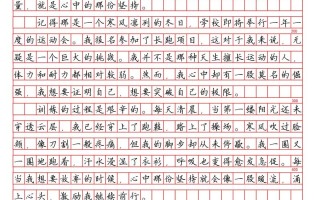 量，就是心中的那份坚持。
记得那是一个寒风凛冽的冬日，学校即将举行一年一
度的运动会。我报名参加了长跑项目，这对于我来说，无
疑是一个巨大的挑战。我并不是那种天生擅长运动的人，
体力和耐力都相对较弱。然而，我心中却有一股莫名的倔
强，我想要证明自己，想要突破自己的极限。
训练的过程是艰辛的。每天清晨，当第一缕阳光还未
穿透云层，我已经穿上了跑鞋，踏上了操场。寒风吹过脸
颊，像刀割一般疼痛，但我的脚步却从未停歇。我一圈又
一圈地跑着，汗水浸湿了衣衫，呼吸也变得愈发急促。每
当我想要放弃的时候，心中那份坚持就会像一股暖流，涌
上心头，激励我继续前行。